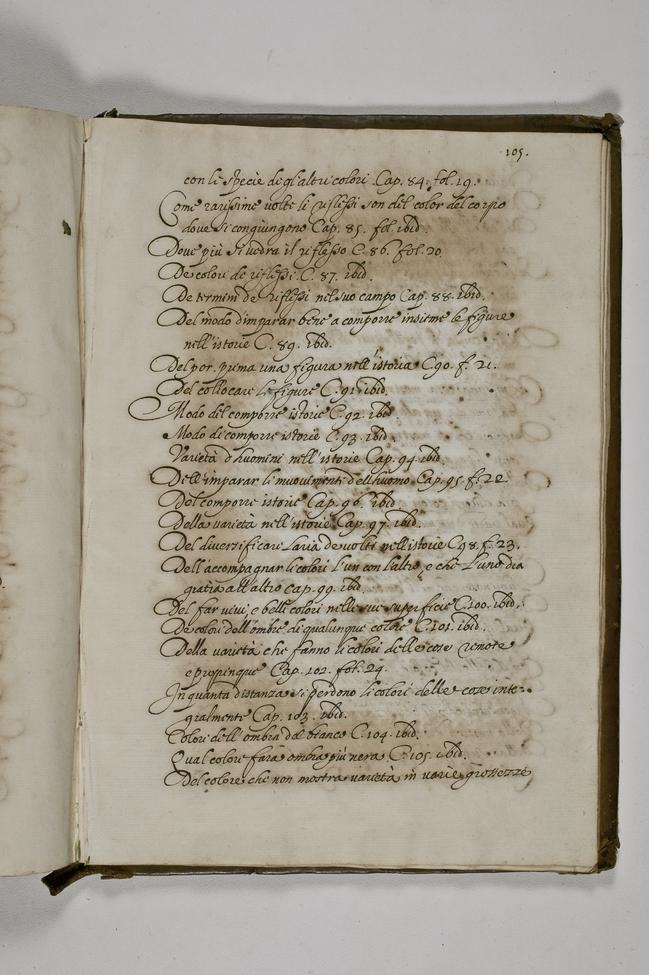 105.
con le specie de gl'altri colori Cap. 84. fol. 19.
Come rarissime volte li riflessi son del color del corpo
dove si congiungono Cap. 85. fol. ibid.
Dove più si vedra il riflesso C. 86. fol. 20
De colori de riflessi. C. 87. ibid.
De termini de riflessi nel suo campo Cap. 88. ibid.
Del modo d'imparar bene a comporre insieme le figure
nell'istorie C. 89. ibid.
Del por. prima una figura nell'istoria C. 90. f. 21.
Del collocare le figure C. 91. ibid.
Modo del comporre istorie C. 92. ibid
Modo di comporre istorie C. 93. ibid.
Varietà d'huomini nell'istorie Cap. 94. ibid.
Dell'imparar li muovimenti dell'huomo Cap. 95. f. 22
Del comporre istorie Cap. 96. ibid
Della varietà nell'istorie Cap. 97. ibid.
Del diversificare l'aria de volti nell'istorie C. 98. f. 23.
Dell'accompagnar li colori l'un con l'altro, e che l'uno dia
gratia all'altro cap. 99. ibid.
Del far vivi, e belli colori nelle sue superficie C. 100. ibid.
De colori dell'ombre di qualunque colore C. 101. ibid.
Della varietà che fanno li colori delle cose remote
e propinque Cap. 102. fol. 24.
In quanta distanza si perdono li colori delle cose inte-
gralmente Cap. 103. ibid.
Colori dell'ombra del bianco C. 104. ibid.
Qual colore farà ombra più nera C. 105. ibid.
Del colore che non mostra varietà in varie grossezze